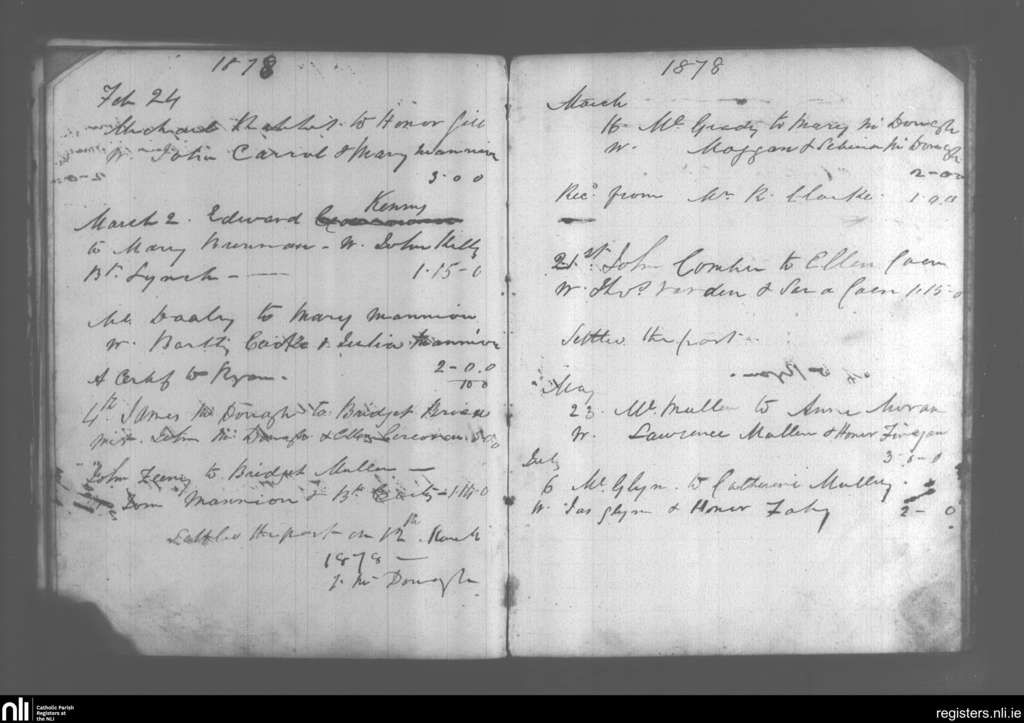 1878
Feb 24
Michael to Honor Gill
W. John Carrol & Mary Mannion
3-0-0
Kenny
March 2. Edward
to Mary Brennan - W. John Kelly
Bt. Lynch - 1-15-0
Ml. Dooly to Mary Mannion
W. Bartly Cooke & Julia Mannion
2-0-0
A Certif to Ryan. 10 0
4th James Mc Donagh to Bridget
John Mc Donagh & Ellen
John Feeney to Bridget Mullen -
Dom Mannion & Bt
Settled the past on 12th March
1878 -
J. Mc Donagh
1878
March
16 Ml. Grady to Mary Mc Donagh
W. Moggan & Mc Donagh
2-00
Recd. from Mr R. Clarke. 1-0-0
21st. John Comber to Ellen Caen
W. Thos. Varden & Caen 1-15-0
Settled the past
May
23. Ml. Mullen to Anne Moran
W. Lawrence Mullen & Honor Finegan
3-5-0
July
6 Ml. Glyn to Catherine Mulley.
W. Jas Glyn & Honor Fahy 2-0
nli Catholic Parish
Registers at
the NLI
registers.nli.ie